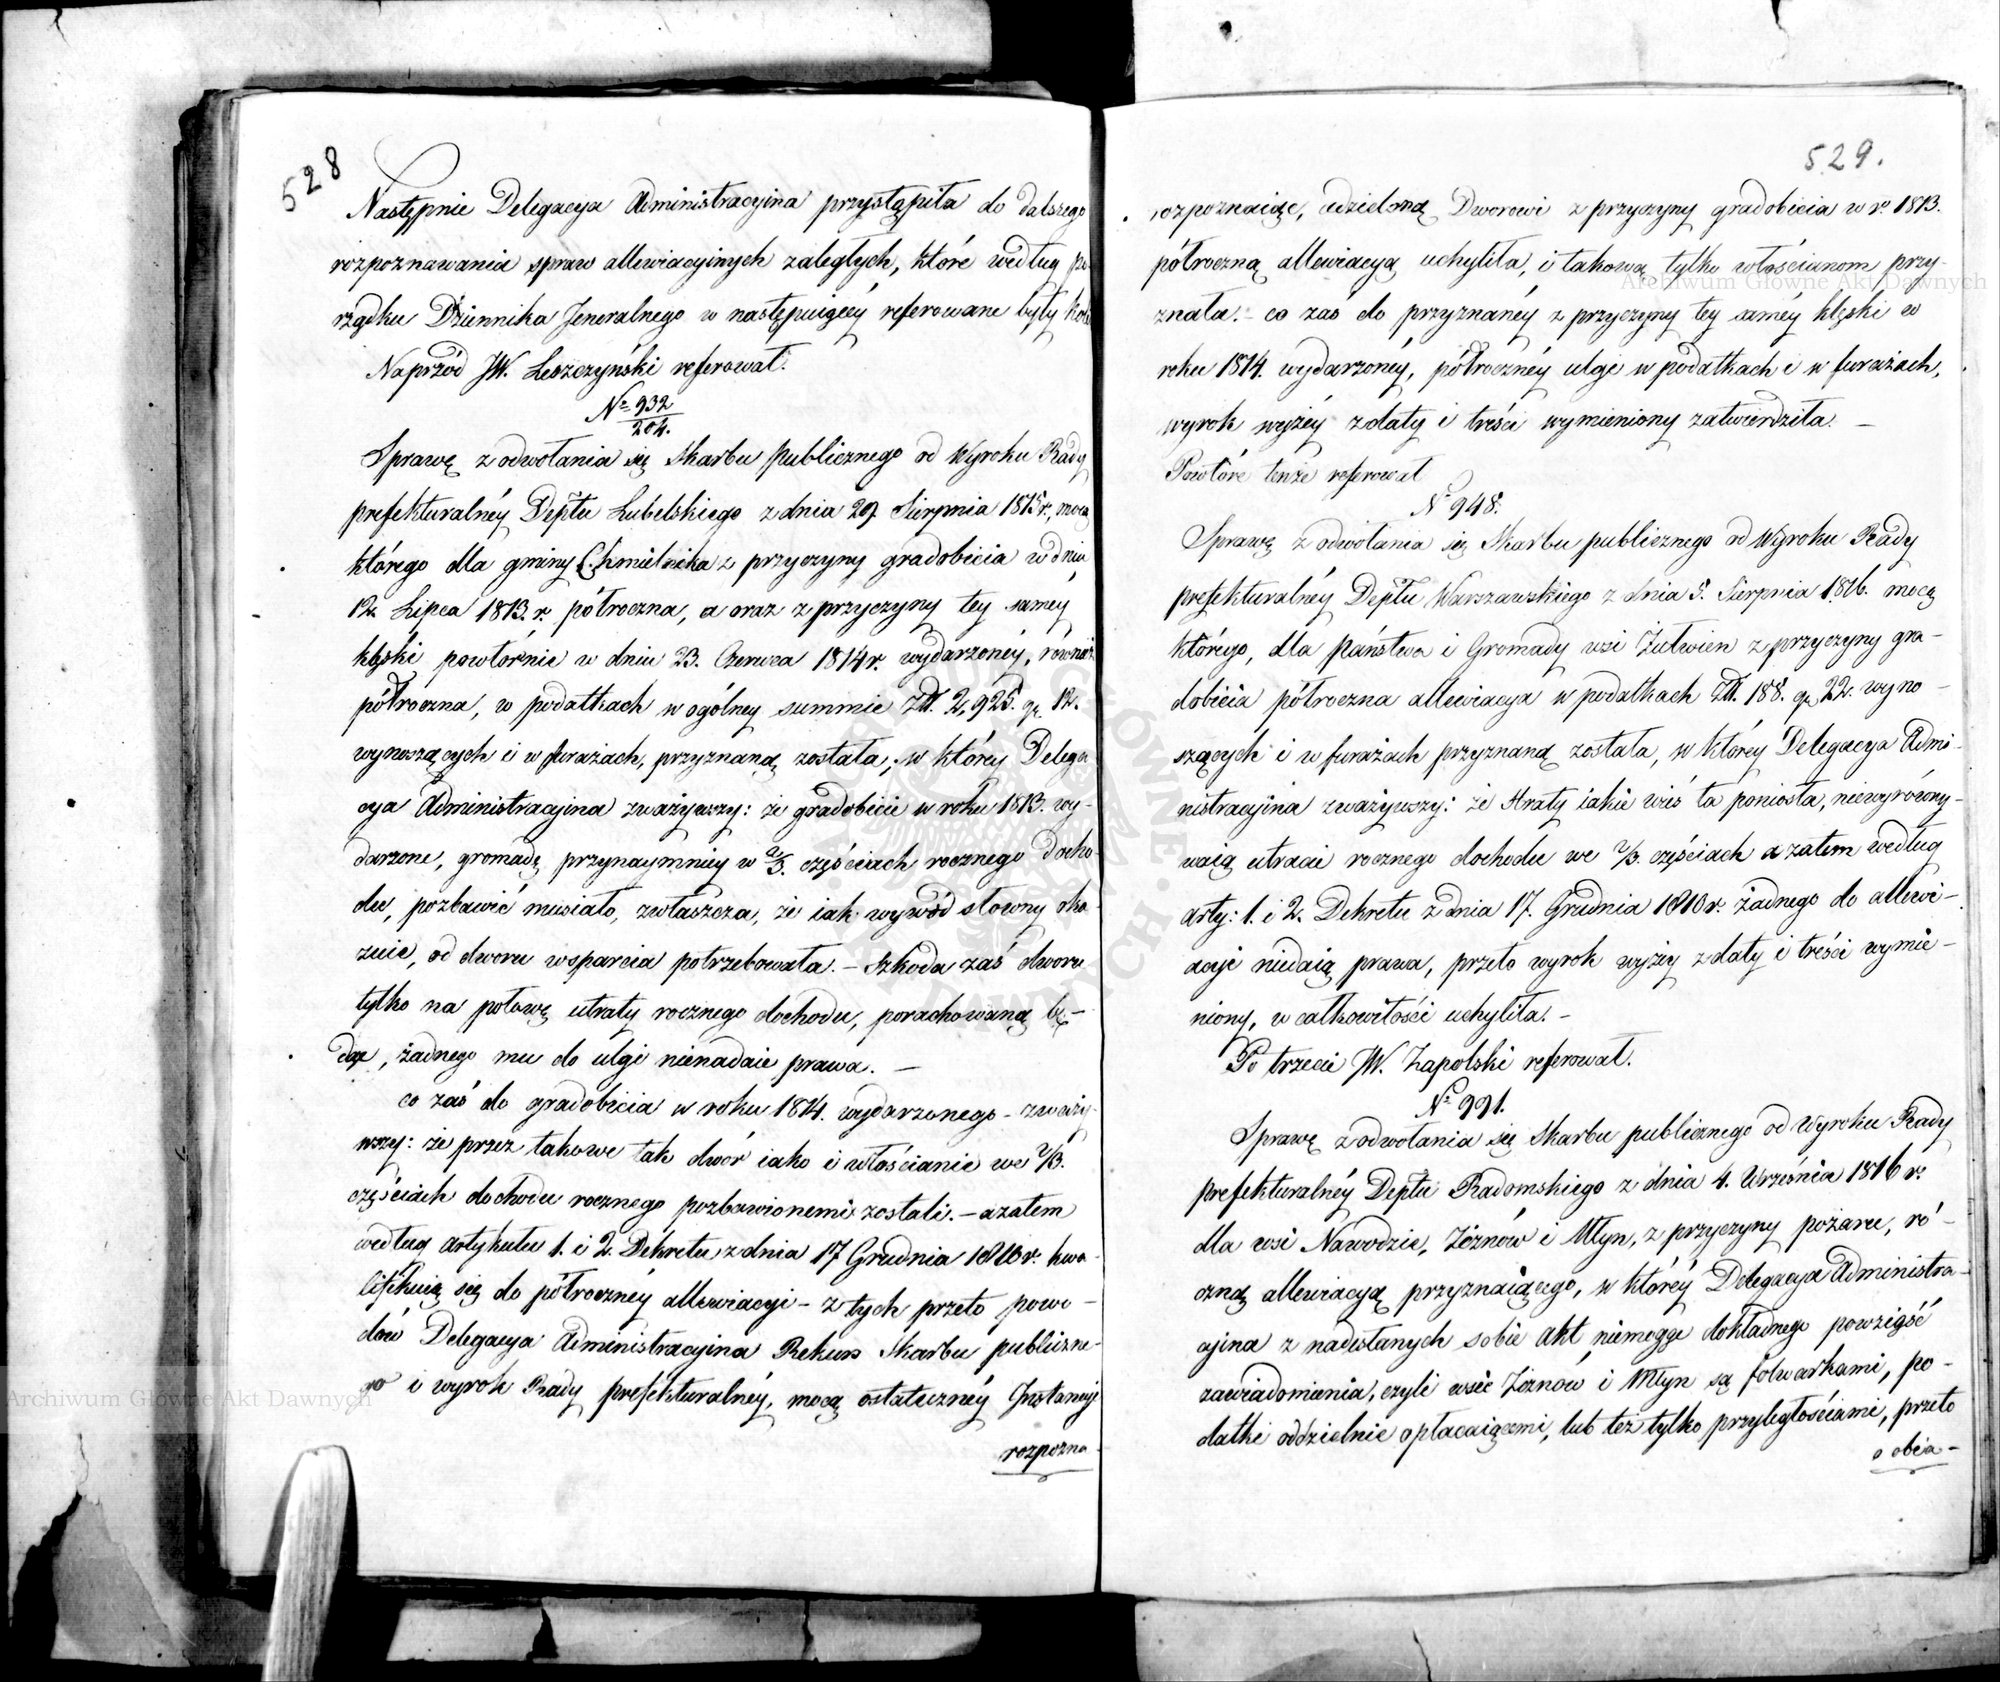 528
Następnie Delegacya Administracyina przystąpiła do dalszego
rozpoznawania spraw allewiacyinych zaległych, które według po
rządku Dziennika Jeneralnego w następuiącéy referowane były kolei
Naprzód JW. Leszczyński referował.
No 932
204.
Sprawę z odwołania się Skarbu publicznego od Wyroku Rady
prefekturalnéy Deptu Lubelskiego z dnia 29. Sierpnia 1815 r, mocą
którego dla gminy Chmielnika z przyczyny gradobicia w dniu
12. Lipca 1813. r. półroczna, a oraz z przyczyny tey saméy
klęski powtórnie w dniu 23. Czerwca 1814 r. wydarzonéy, również
półroczna, w podatkach w ogólney summie Złł. 2,925. gr. 12.
wynoszących i w furażach, przyznaną została; w którey Delega
cya Administracyina zważywszy: że gradobicie w roku 1813. wy-
darzone, gromadę przynaymniey w 2/3. częściach rocznego docho
du, pozbawić musiało, zwłaszcza, że iak wywód słowny oka
zuie, od dworu wsparcia potrzebowała. – Szkoda zaś dworu
tylko na połowę utraty rocznego dochodu, porachowaną bę-
dąc, żadnego mu do ulgi nienadaie prawa. –
co zaś do gradobicia w roku 1814. wydarzonego – zważy-
wszy: że przez takowe tak dwór iako i włościanie we 2/3.
częściach dochodu rocznego pozbawionemi zostali. – a zatem
według artykułu 1. i 2. Dekretu z dnia 17 Grudnia 1810 r. kwa-
lifikuią się do półrocznéy allewiacyi – z tych przeto powo-
dów Delegacya Administracyina Rekurs Skarbu publiczne-
go i wyrok Rady prefekturalnéy, mocą ostatecznéy Instancyi
rozpozna-
529.
rozpoznaiąc, udzieloną Dworowi z przyczyny gradobicia w ro 1813.
półroczną allewiacyą uchyliła, i takową tylko włościanom przy-
znała. – co zaś do przyznanéy z przyczyny tey saméy klęski w
roku 1814. wydarzonéy, półrocznéy ulgi w podatkach i w furażach,
wyrok wyżéy z daty i treści wymieniony zatwierdziła. –
Powtóre tenże referował
No 948.
Sprawę z odwołania się Skarbu publicznego od Wyroku Rady
prefekturalnéy Deptu Warszawskiego z dnia 5. Sierpnia 1816. mocą
którego, dla Państwa i Gromady wsi Żutwien z przyczyny gra-
dobicia półroczna allewiacya w podatkach Złł. 188. gr. 22. wyno-
szących i w furażach przyznaną została, w którey Delegacya Admi-
nistracyina zważywszy: że straty iakie wieś ta poniosła, niewyrówny-
waią utracie rocznego dochodu we 2/3. częściach a zatem według
arty: 1. i 2. Dekretu z dnia 17. Grudnia 1810 r. żadnego do allewi-
acyi niedaią prawa, przeto wyrok wyżéy z daty i treści wymie-
niony, w całkowitości uchyliła. –
Po trzecie JW. Zapolski referował.
No 991.
Sprawę z odwołania się Skarbu publicznego od Wyroku Rady
prefekturalnéy Deptu Radomskiego z dnia 4. Września 1816 r.
dla wsi Nawodzie, Żóżnów i Młyn, z przyczyny pożaru, ró-
czną allewiacyą przyznaiącego, w któréy Delegacya Administra-
cyina z nadesłanych sobie akt niemogąc dokładnego powziąść
zawiadomienia, czyli wsie Żóżnów i Młyn są folwarkami, po-
datki oddzielnie opłacaiącemi, lub też tylko przyległościami, przeto
o obia-
Archiwum Główne Akt Dawnych
Archiwum Główne Akt Dawnych